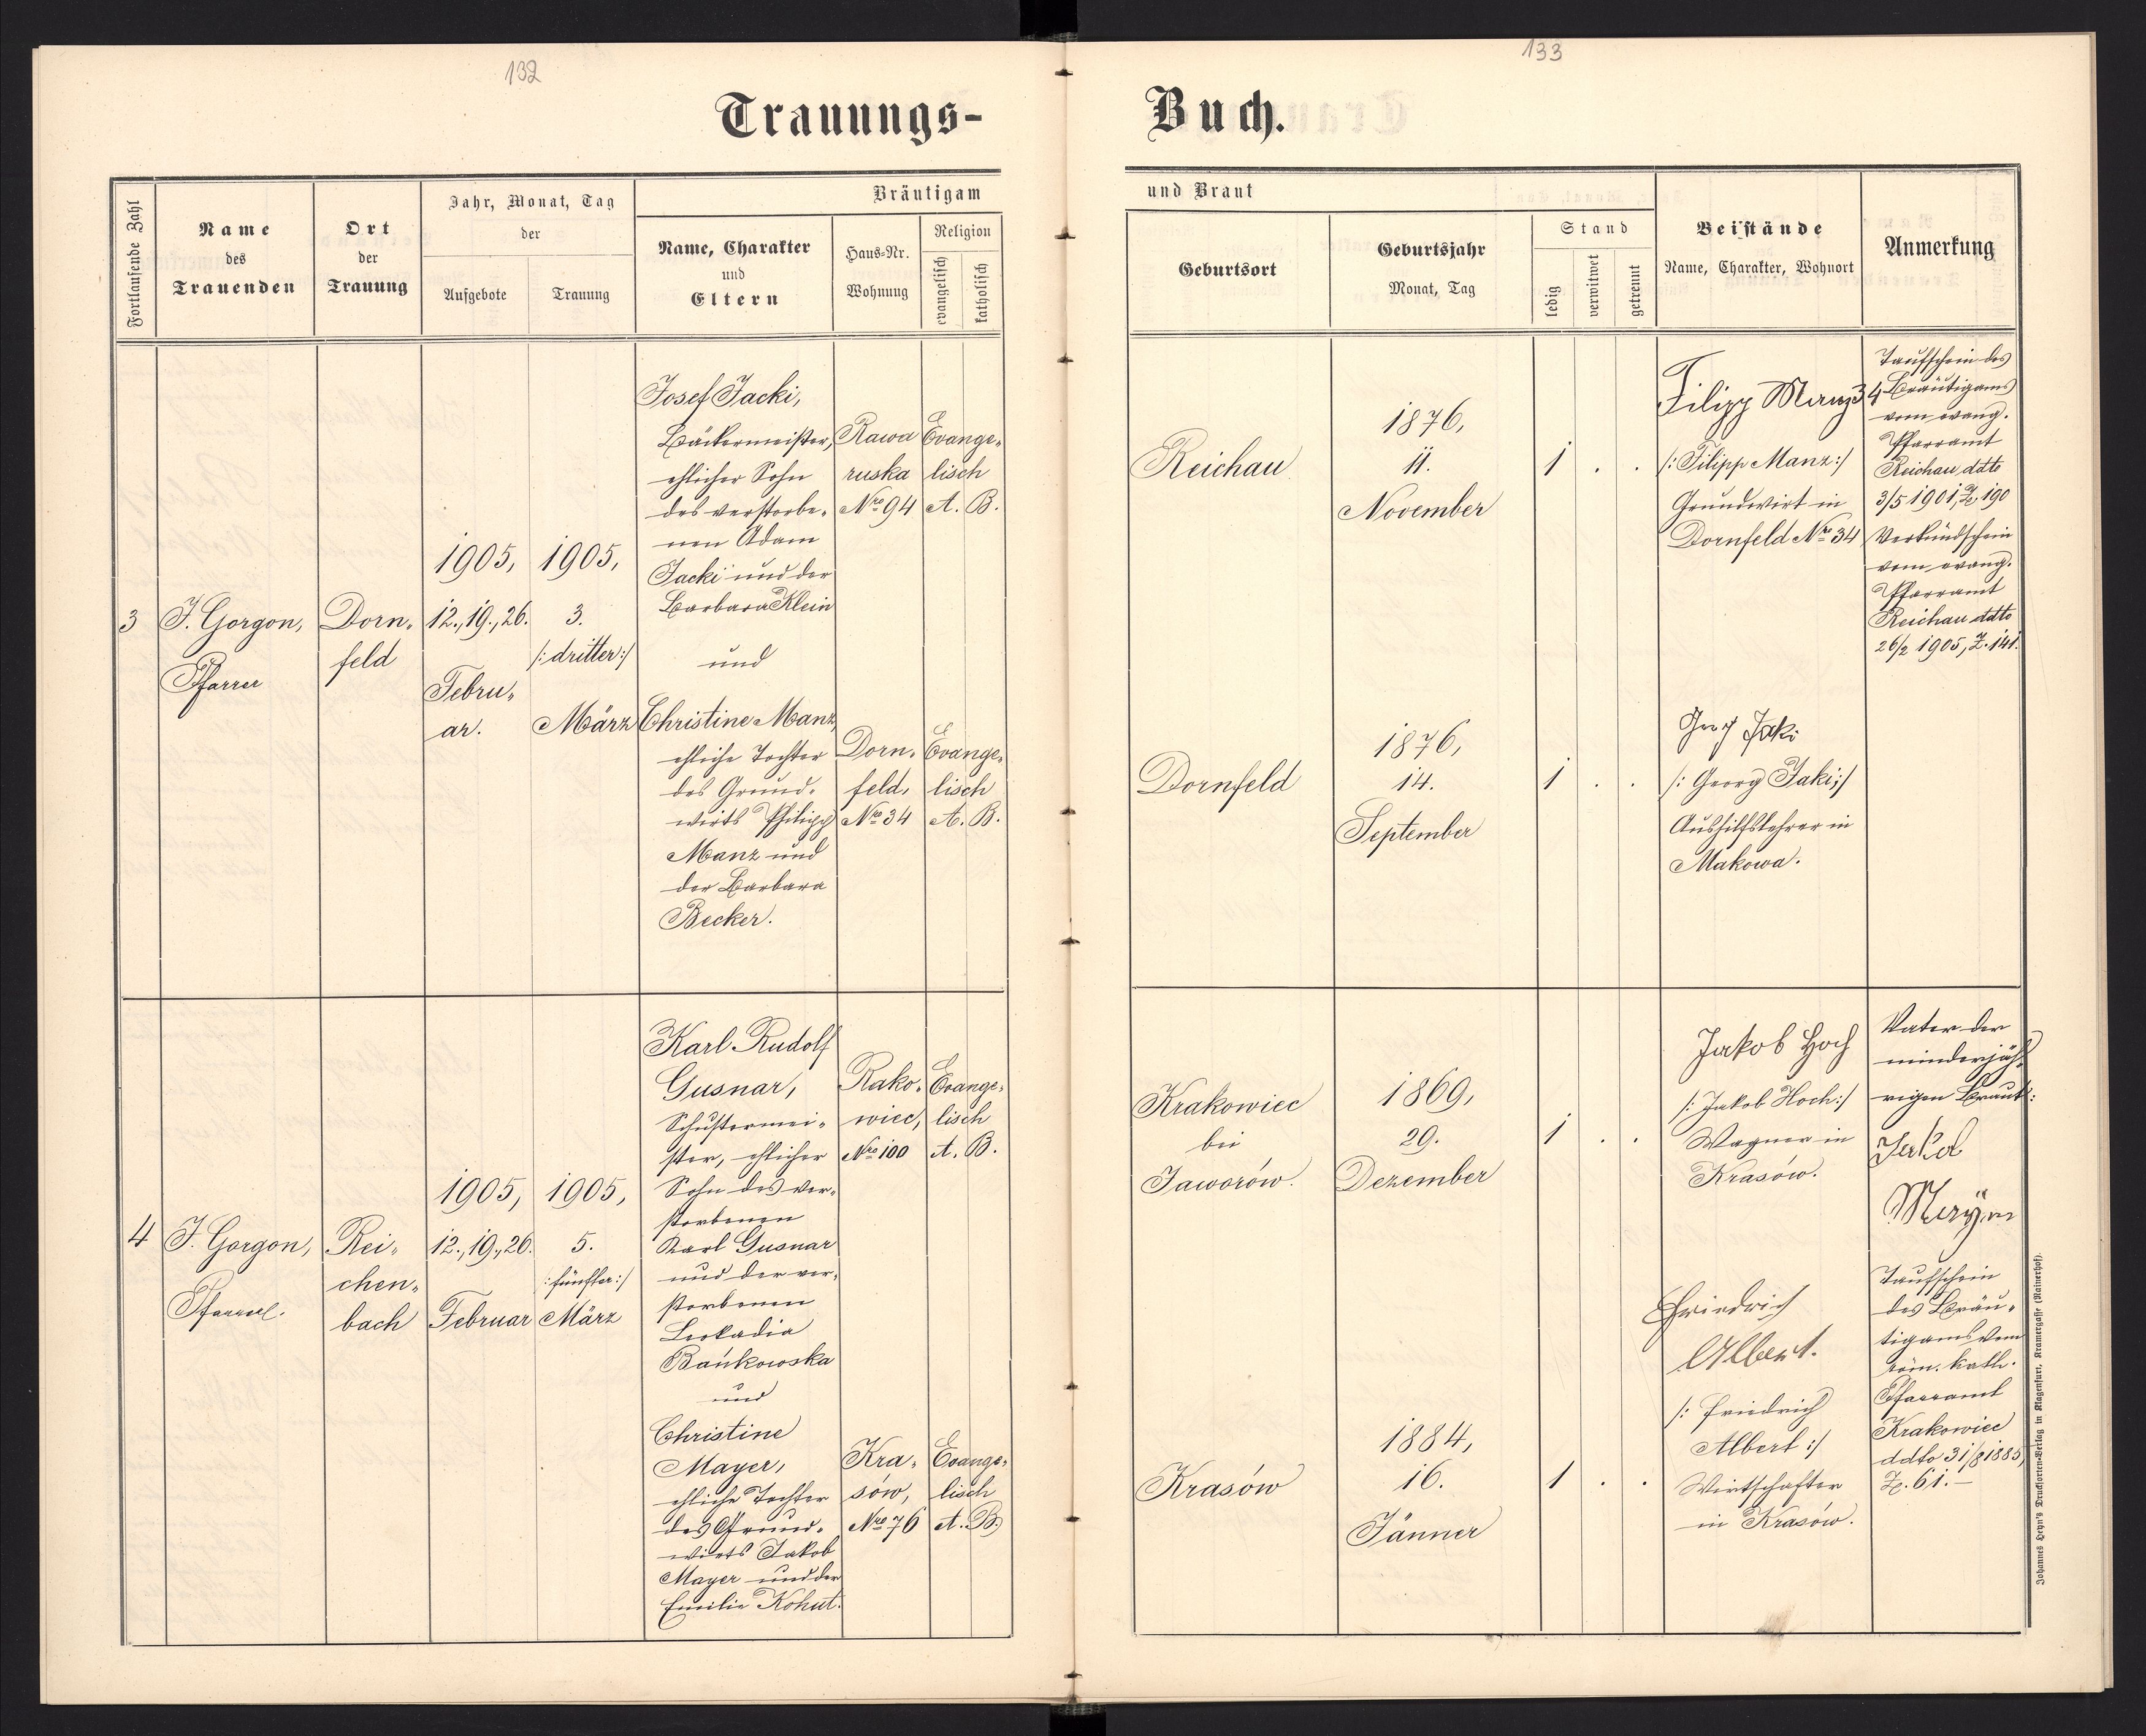 132
133
Trauungs-
Buch.
Fortlaufende Zahl
Name
des
Trauenden
Ort
der
Trauung
Jahr, Monat, Tag
der
Aufgebote
Trauung
Bräutigam
Name, Charakter
und
Eltern
Haus-Nr.
Wohnung
Religion
evangelisch
katholisch
und Braut
Geburtsort
Geburtsjahr
Monat, Tag
Stand
ledig
verwitwet
getrennt
Beistände
Name, Charakter, Wohnort
Anmerkung
3
J. Gorgon,
Pfarrer
Dorn-
feld
1905,
12., 19., 26.
Febru-
ar.
1905,
3.
/: dritter :/
März
Josef Jacki,
Bäckermeister,
ehlicher Sohn
des verstorbe-
nen Adam
Jacki und der
Barbara Klein
und
Christine Manz,
ehliche Tochter
des Grund-
wirts Philipp
Manz und
der Barbara
Becker.
Rawa
ruska
Nro 94
Dorn-
feld,
Nro 34
Evange-
lisch
A. B.
Evange-
lisch
A. B.
Reichau
Dornfeld
1876,
11.
November
1876,
14.
September
1 . .
1 . .
Filipp Manz
/: Filipp Manz :/
Grundwirt in
Dornfeld Nro 34
Jaki
/: Georg Jaki :/
Aushilfslehrer in
Makowa.
Taufschein des
Bräutigams
vom evang.
Pfarramt
Reichau ddto
3/5 1901, Z. 190
Verkündschein
vom evang.
Pfarramt
Reichau ddto
26/2 1905, Z. 141.
4
J. Gorgon,
Pfarrer.
Rei-
chen-
bach
1905,
12., 19., 26.
Februar
1905,
5.
/: fünfter :/
März
Karl Rudolf
Gusnar,
Schustermei-
ster, ehlicher
Sohn des ver-
storbenen
Karl Gusnar
und der ver-
storbenen
Leokadia
Bańkowska
und
Christine
Mayer,
ehliche Tochter
des Grund-
wirts Jakob
Mayer und der
Emilie Kohut.
Rako-
wiec,
Nro 100
Kra-
sów,
Nro 76
Evange-
lisch
A. B.
Evange-
lisch
A. B.
Krakowiec
bei
Jaworów.
Krasów
1869,
29.
Dezember
1884,
16.
Jänner
1 . .
1 . .
Jakob Hoch
/: Jakob Hoch :/
Wagner in
Krasów.
Friedrich
Albert.
/: Friedrich
Albert :/
Wirtschafter
in Krasów.
Vater der
minderjäh-
rigen Braut:
Jakob
Taufschein
des Bräu-
tigams vom
röm. kath.
Pfarramt
Krakowiec
ddto 31/8 1885,
Z. 61.-
Johannes Heyn's Drucksorten-Verlag in Klagenfurt, Kramergasse (Rainerhof).